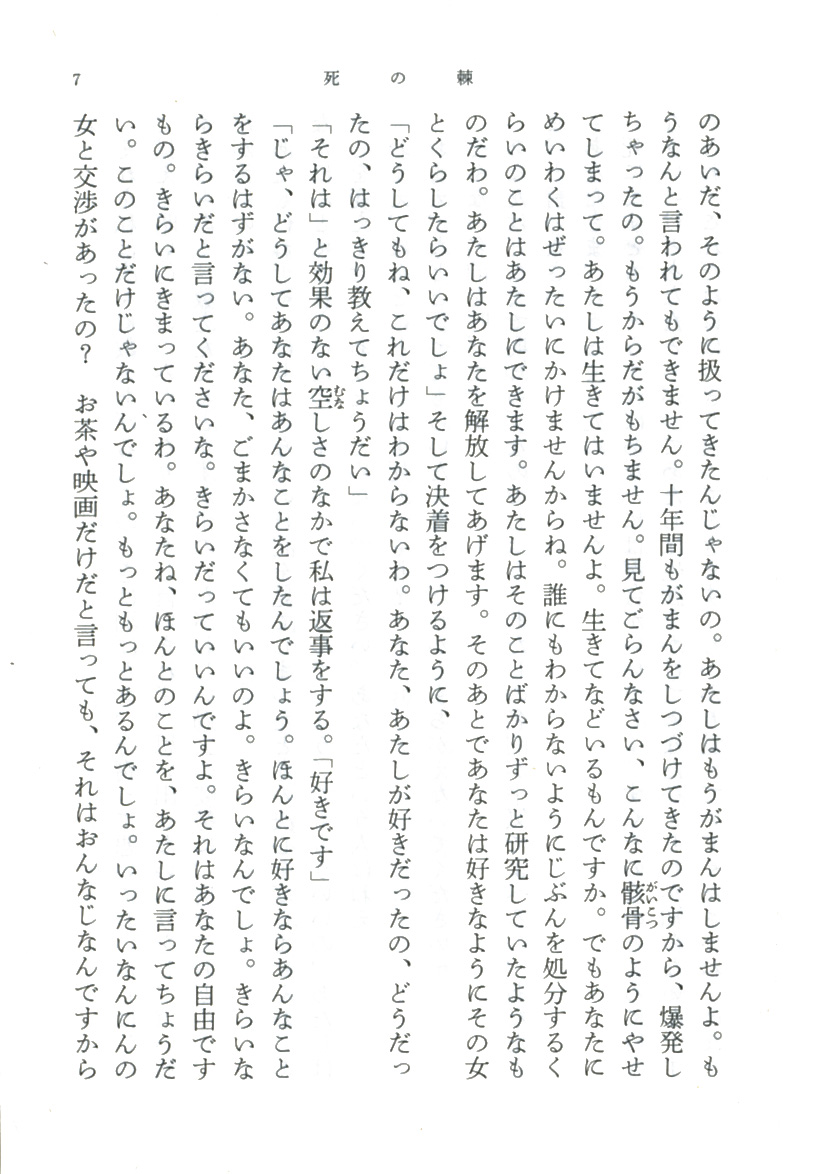 7
死の棘
のあいだ、そのように扱ってきたんじゃないの。あたしはもうがまんはしませんよ。も
うなんと言われてもできません。十年間もがまんをしつづけてきたのですから、爆発し
ちゃったの。もうからだがもちません。見てごらんなさい、こんなに骸骨のようにやせ
がいこつ
てしまって。あたしは生きてはいませんよ。生きてなどいるもんですか。でもあなたに
めいわくはぜったいにかけませんからね。誰にもわからないようにじぶんを処分するく
らいのことはあたしにできます。あたしはそのことばかりずっと研究していたようなも
のだわ。あたしはあなたを解放してあげます。そのあとであなたは好きなようにその女
とくらしたらいいでしょ」そして決着をつけるように、
「どうしてもね、これだけはわからないわ。あなた、あたしが好きだったの、どうだっ
たの、はっきり教えてちょうだい」
「それは」と効果のない空しさのなかで私は返事をする。「好きです」
むな
「じゃ、どうしてあなたはあんなことをしたんでしょう。ほんとに好きならあんなこと
をするはずがない。あなた、ごまかさなくてもいいのよ。きらいなんでしょ。きらいな
らきらいだと言ってくださいな。きらいだっていいんですよ。それはあなたの自由です
もの。きらいにきまっているわ。あなたね、ほんとのことを、あたしに言ってちょうだ
い。このことだけじゃないんでしょ。もっともっとあるんでしょ。いったいなんにんの
女と交渉があったの？　お茶や映画だけだと言っても、それはおんなじなんですから